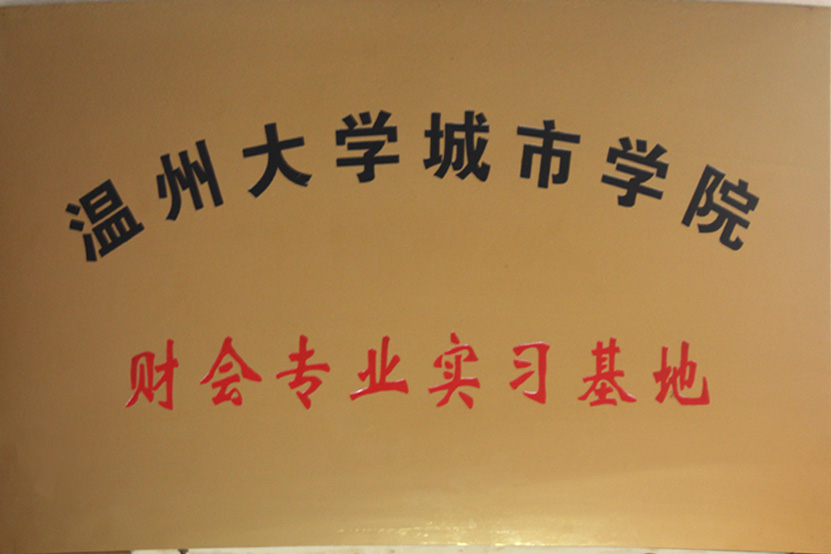 温州大学城市学院
财会专业实习基地